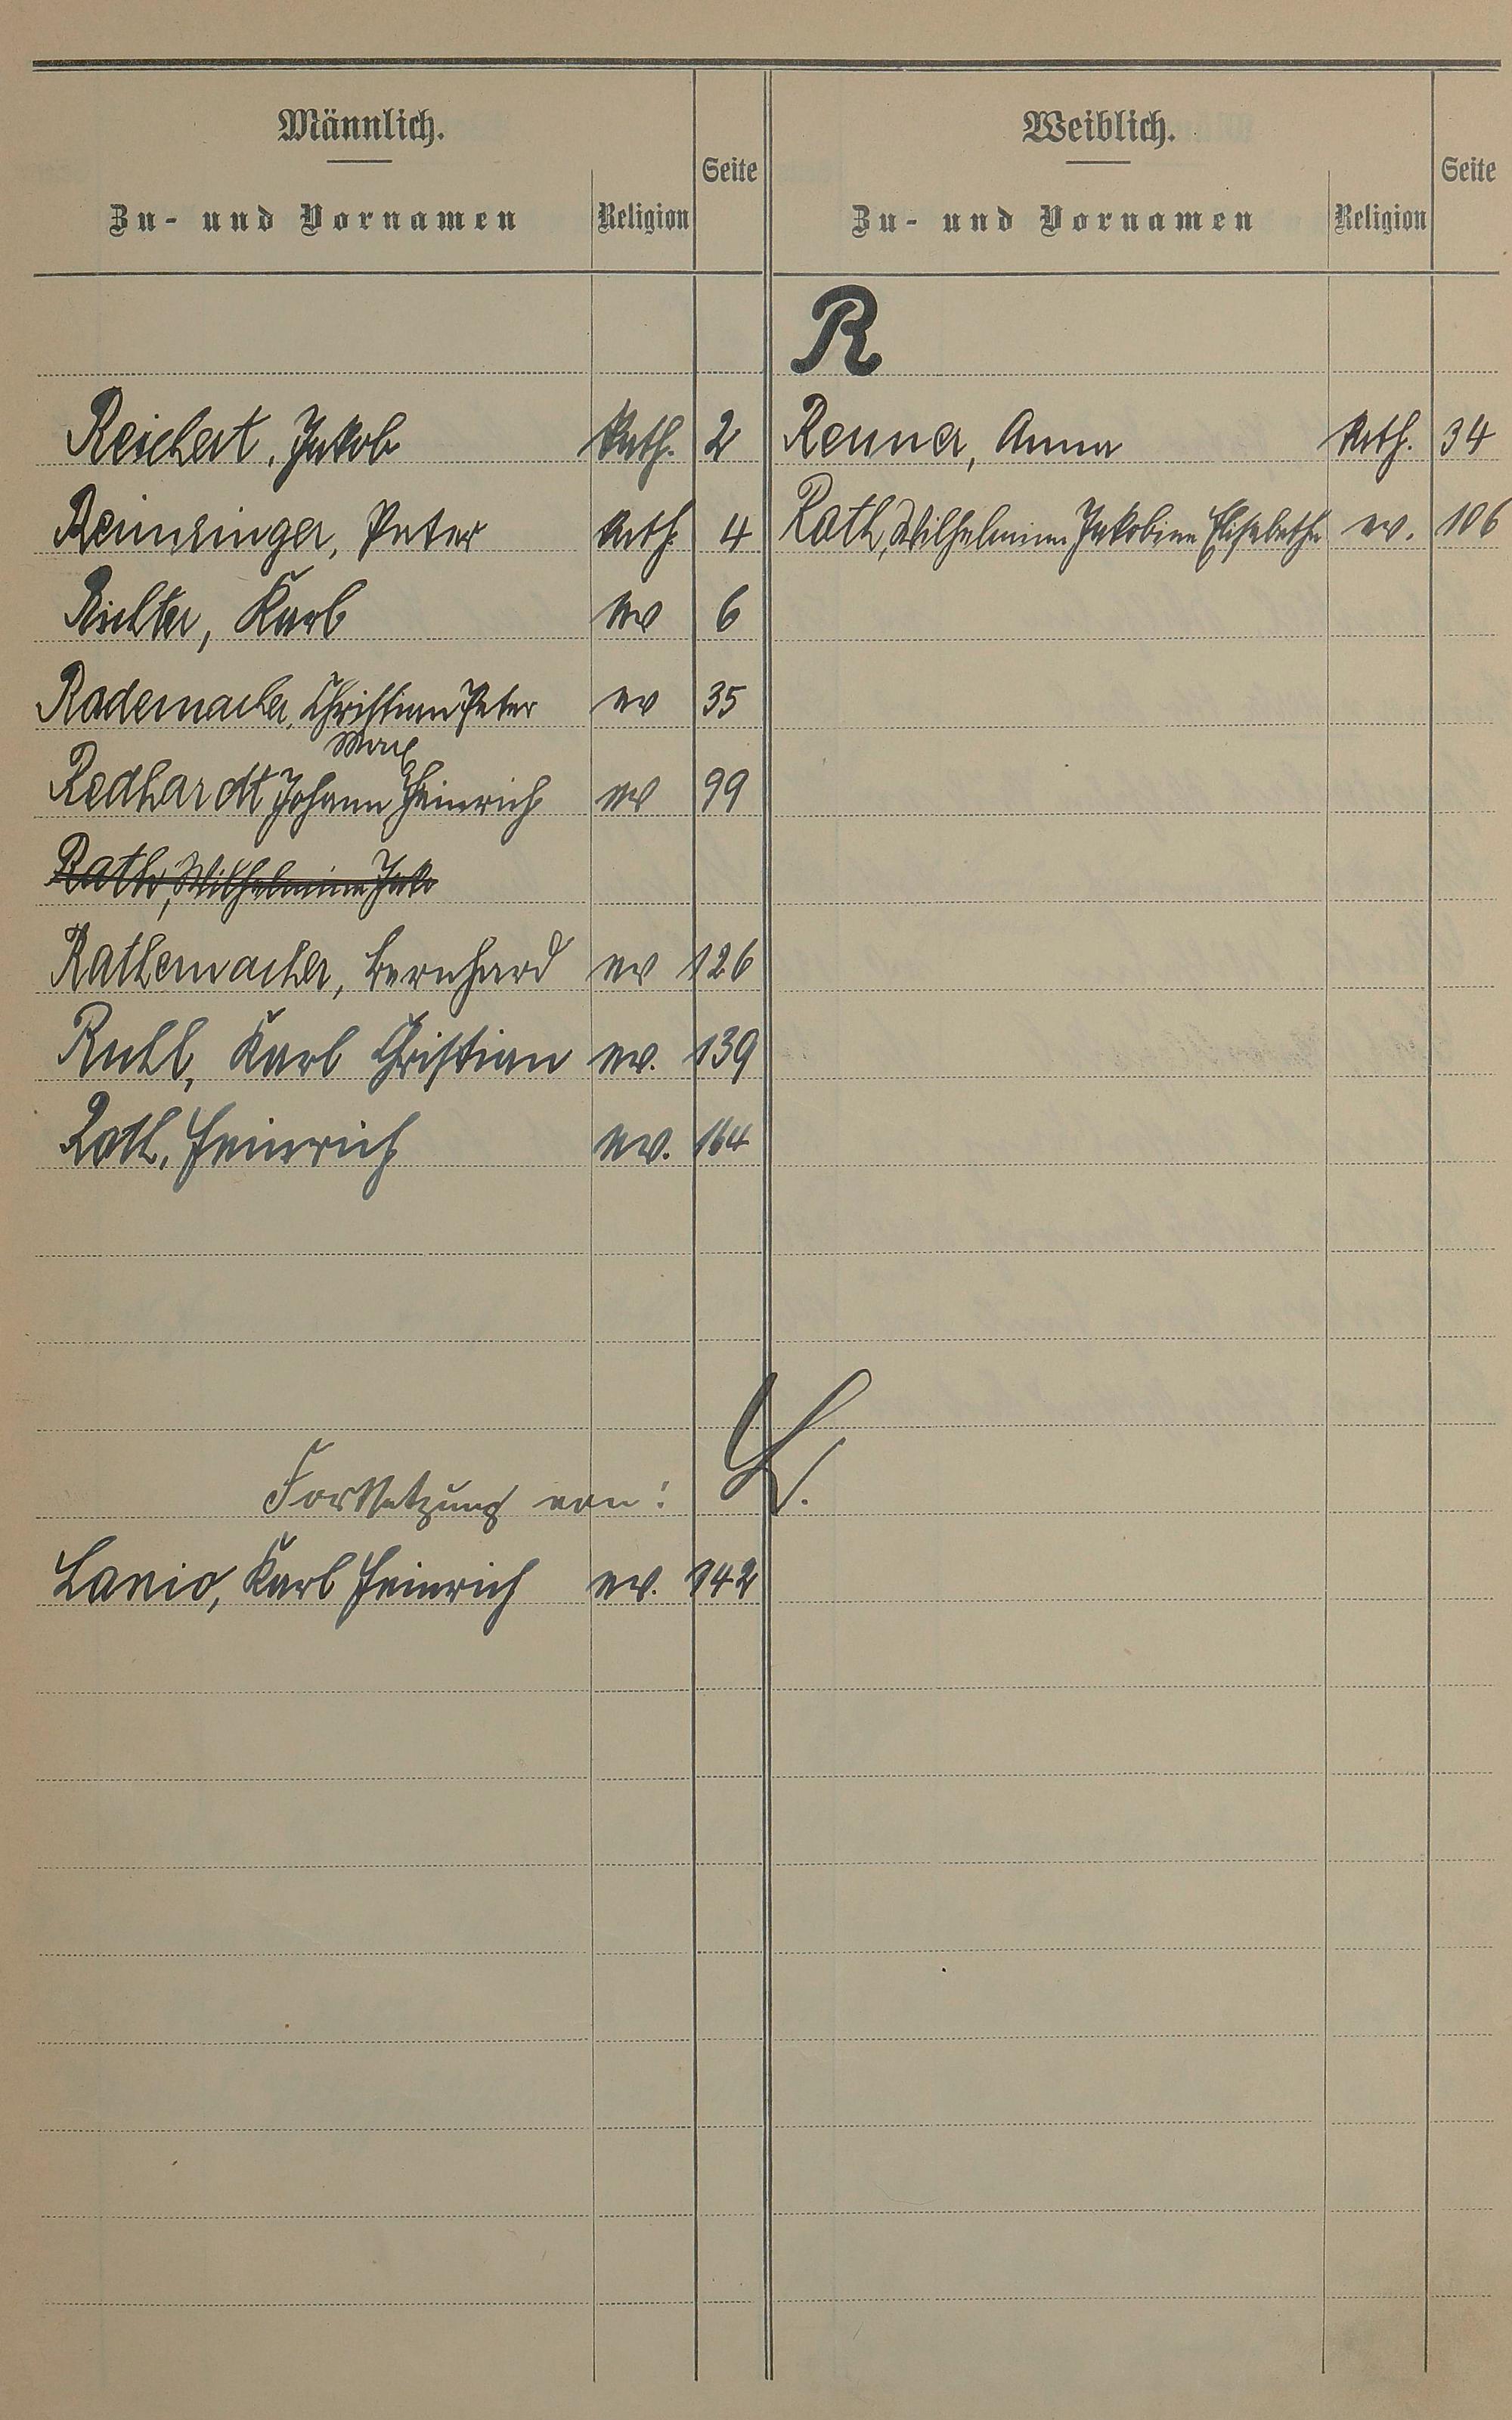 Männlich.
Zu- und Vornamen Religion Seite
Weiblich.
Zu- und Vornamen Religion Seite
R
Reichert, Jakob Kath. 2 Renner, Anna Kath. 34
Remsinger, Peter Kath. 4 Rath, Wilhelmine Jakobine Elisabetha ev. 106
Richter, Karl ev 6
Rademacher, Christian Peter ev 35
Max
Redhardt Johann Heinrich ev 99
Rath, Wilhelmine Jako
Rathemacher, Bernhard ev 126
Ruhl, Karl Christian ev. 139
Roth, Heinrich ev. 164
Fortsetzung von: L.
Lanio, Karl Heinrich ev. 142